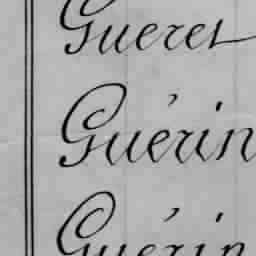 Gueret
Guérin
Guérin